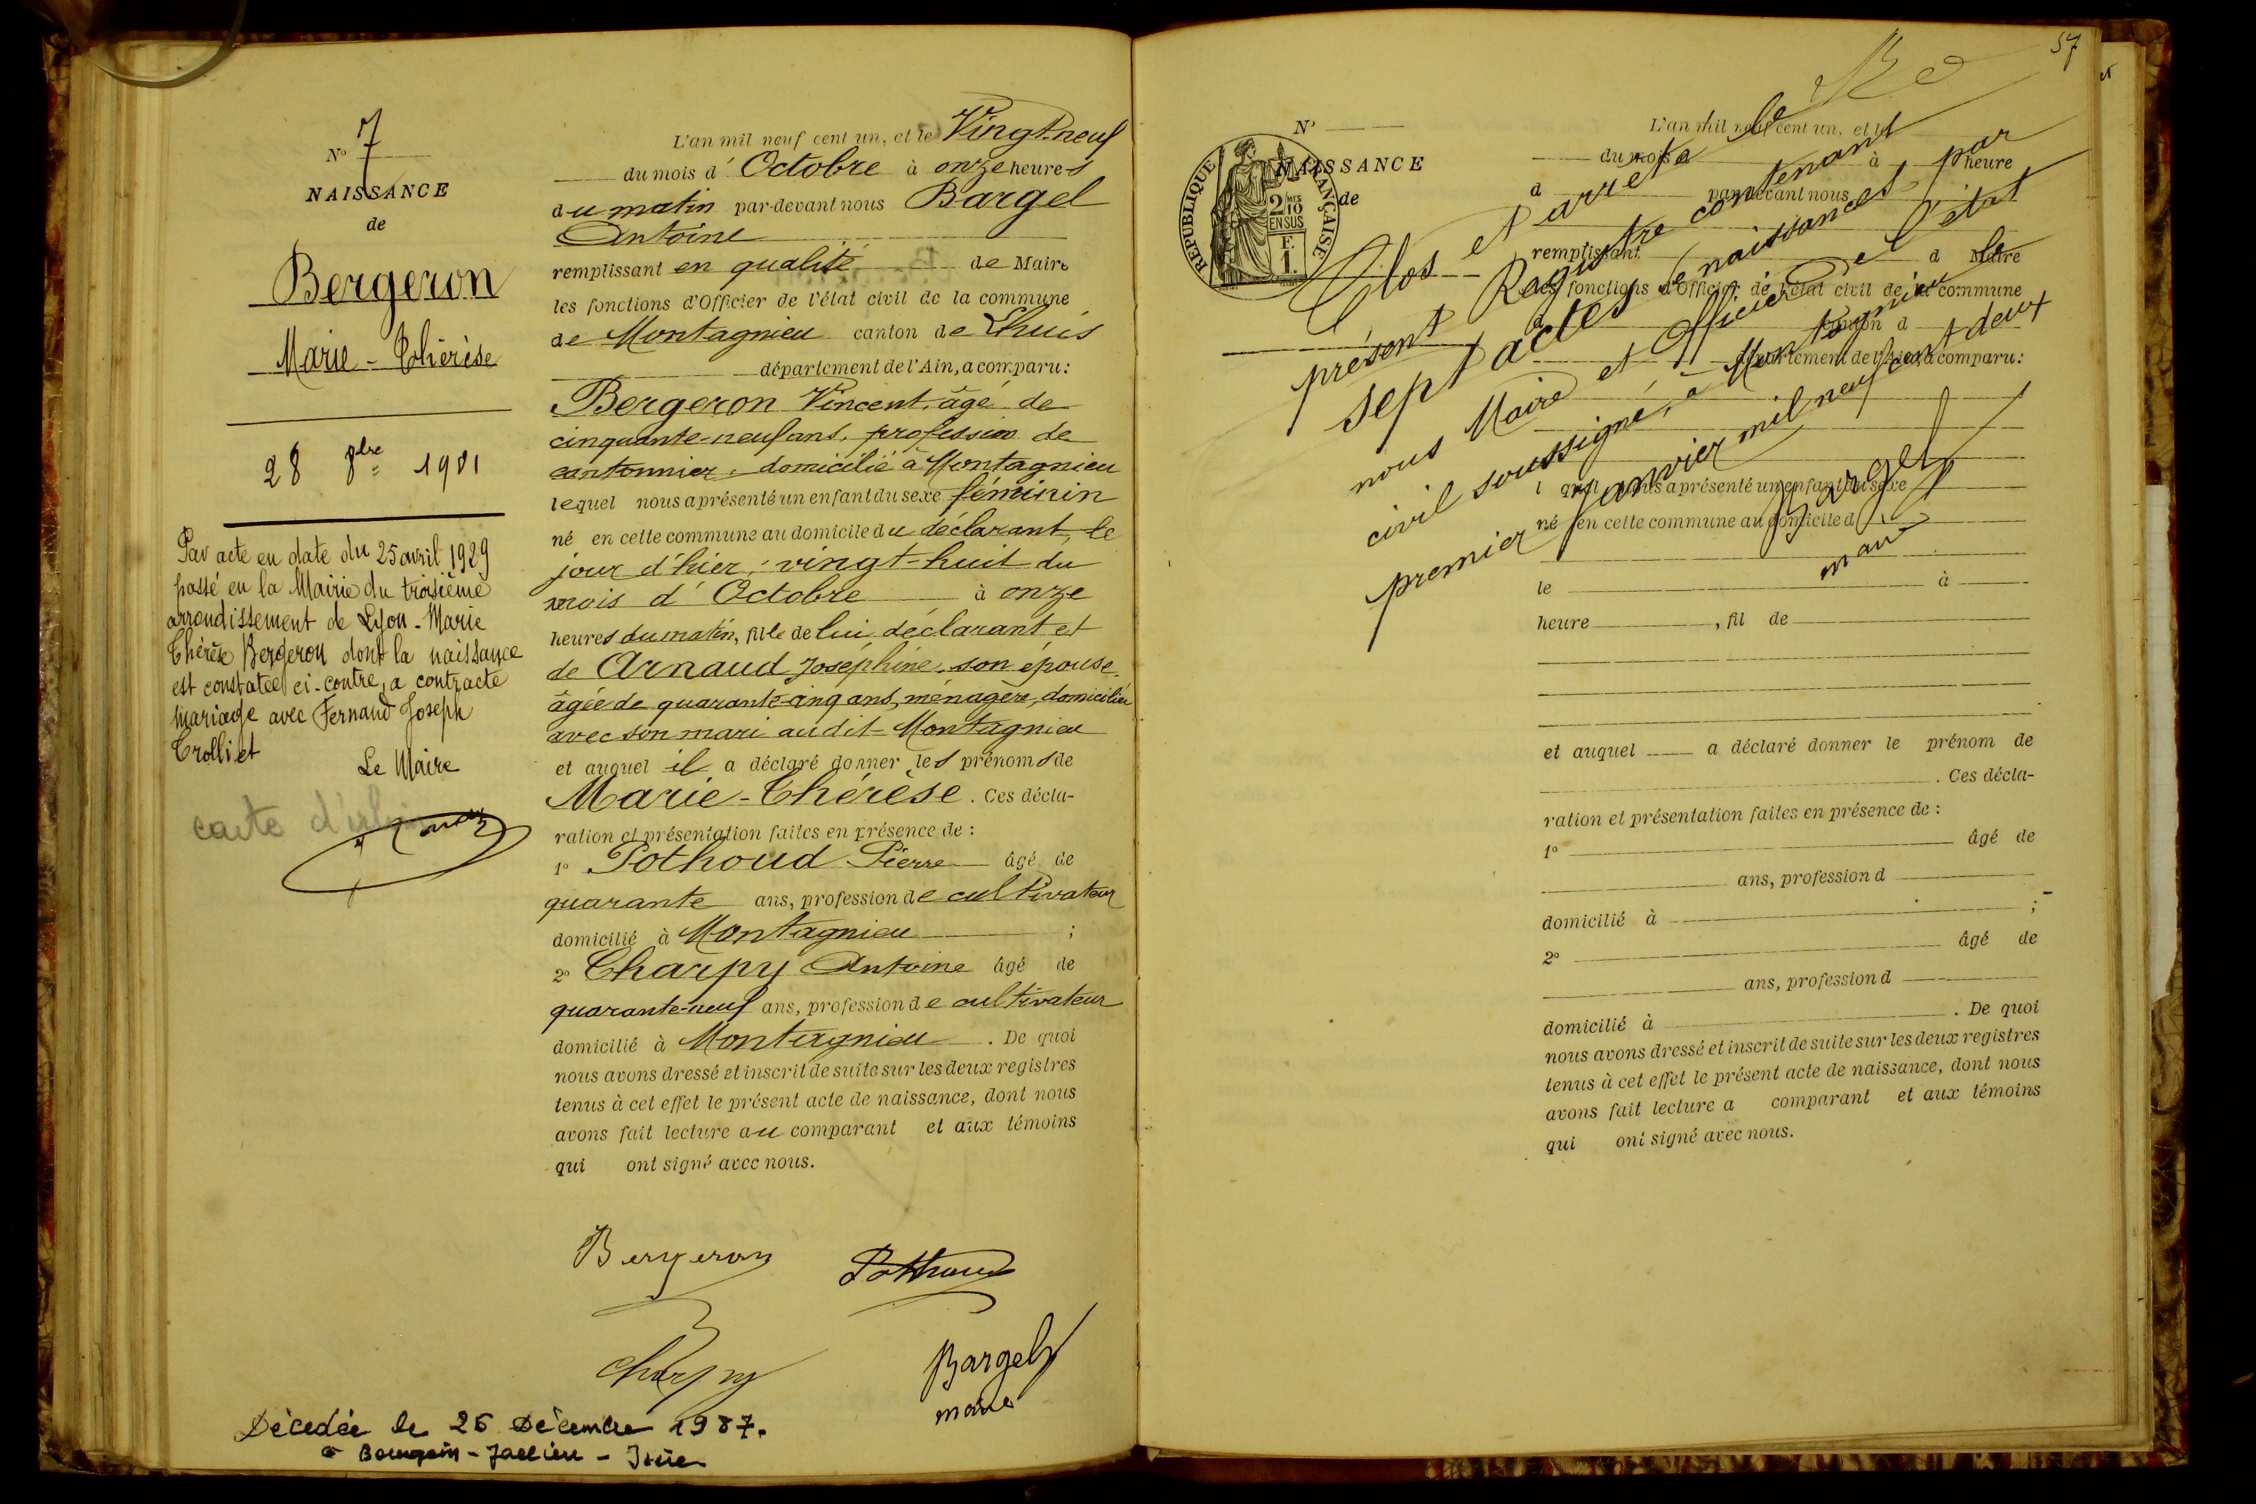 N° 7
NAISSANCE
de
Bergeron
Marie-Thérèse
28 8bre 1901
Par acte en date du 25 avril 1929
passé en la Mairie du troisième
arrondissement de Lyon - Marie
Thérèse Bergeron dont la naissance
est constatée ci-contre, a contracté
mariage avec Fernand Joseph
Trolliet
Le Maire
carte
L'an mil neuf cent un, et le Vingt-neuf
du mois d'Octobre à onze heures
du matin par-devant nous Bargel
Antoine
remplissant en qualité de Maire
les fonctions d'Officier de l'état civil de la commune
de Montagnieu canton de Lhuis
département de l'Ain, a comparu:
Bergeron Vincent, âgé de
cinquante-neuf ans, profession de
cantonnier, domicilié à Montagnieu
lequel nous a présenté un enfant du sexe féminin
né en cette commune au domicile du déclarant, le
jour d'hier, vingt-huit du
mois d'Octobre à onze
heures du matin, fille de lui déclarant et
de Arnaud Joséphine, son épouse,
âgée de quarante-cinq ans, ménagère, domiciliée
avec son mari audit Montagnieu
et auquel il a déclaré donner les prénoms de
Marie-Thérèse. Ces décla-
ration et présentation faites en présence de:
1° Pothoud Pierre âgé de
quarante ans, profession de cultivateur
domicilié à Montagnieu ;
2° Charpy Antoine âgé de
quarante-neuf ans, profession de cultivateur
domicilié à Montagnieu . De quoi
nous avons dressé et inscrit de suite sur les deux registres
tenus à cet effet le présent acte de naissance, dont nous
avons fait lecture au comparant et aux témoins
qui ont signé avec nous.
Bergeron Pothoud
Charpy
Bargel
maire
Décédée le 26 Décembre 1987.
à Bourgoin-Jallieu - Isère
57
N°
NAISSANCE
de
RÉPUBLIQUE FRANÇAISE
2 MES
10
EN SUS
F.
1.
L'an mil neuf cent un, et le
du mois d à heure
d par-devant nous
remplissant d Maire
les fonctions d'Officier de l'état civil de la commune
d canton d
département de l'Ain, a comparu:
Clos et arrêté le
présent Registre contenant
sept actes de naissances, par
nous Maire et Officier de l'état
civil soussigné, à Montagnieu le
premier janvier mil neuf cent deux
Bargel
maire
l quel nous a présenté un enfant du sexe
né en cette commune au domicile d
le à
heure , fil de
et auquel a déclaré donner le prénom de
. Ces décla-
ration et présentation faites en présence de:
1° âgé de
ans, profession d
domicilié à ;
2° âgé de
ans, profession d
domicilié à . De quoi
nous avons dressé et inscrit de suite sur les deux registres
tenus à cet effet le présent acte de naissance, dont nous
avons fait lecture a comparant et aux témoins
qui ont signé avec nous.